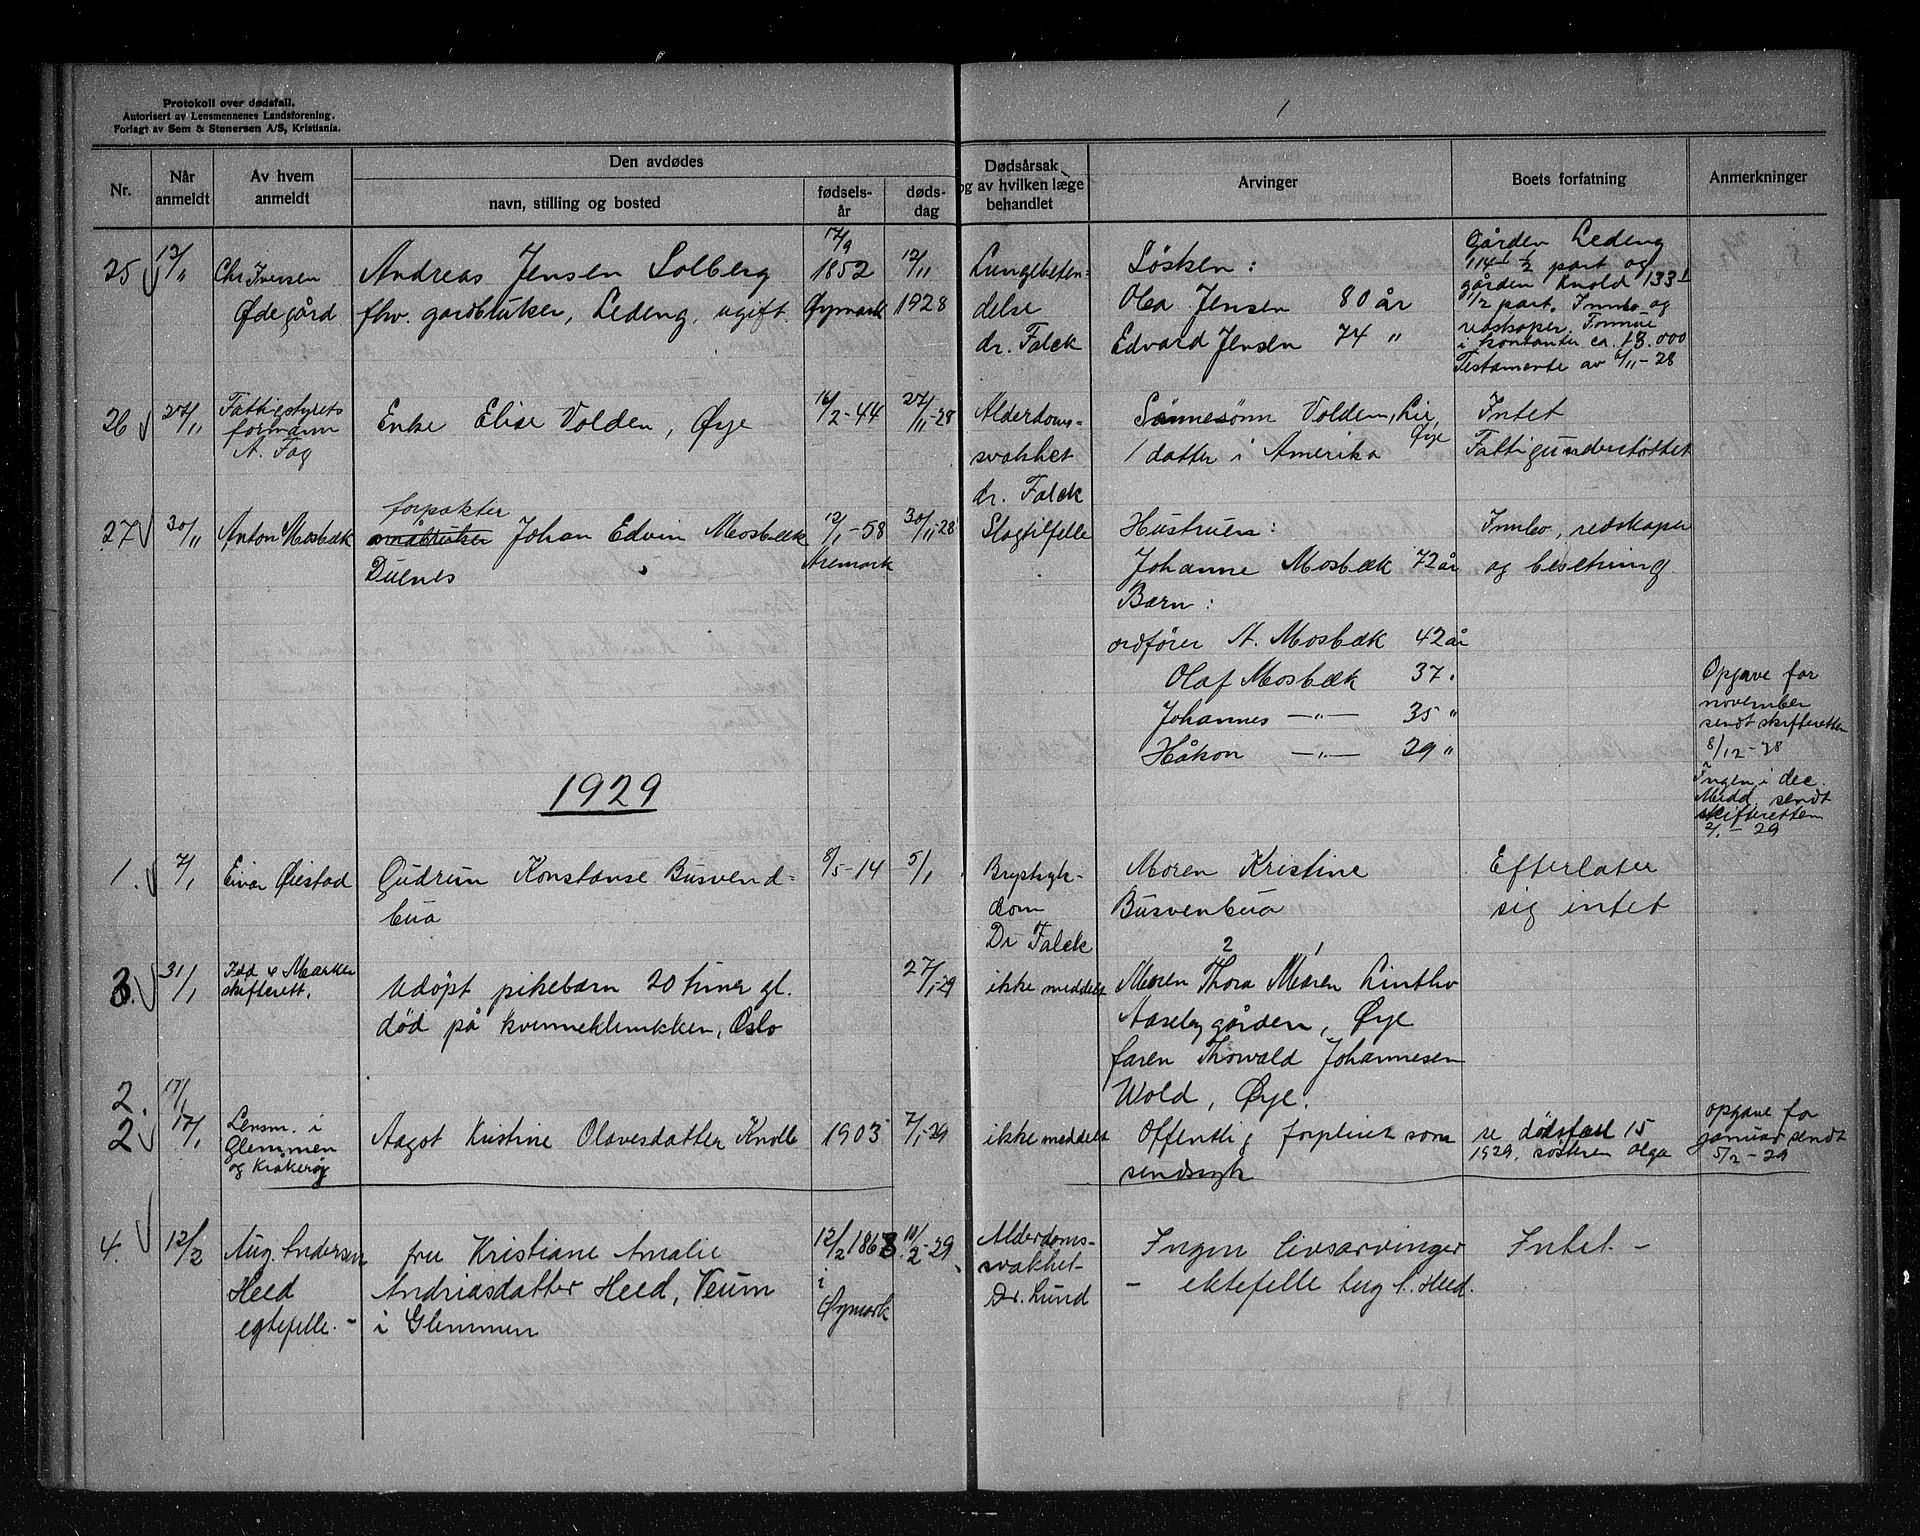 Protokoll over dødsfall.
Autorisert av Lensmennenes Landsforening.
Forlagt av Sem & Stenersen A/S, Kristiania.
1
Nr.
Når anmeldt
Av hvem anmeldt
Den avdødes
navn, stilling og bosted
fødsels-år
døds-dag
Dødsårsak og av hvilken læge behandlet
Arvinger
Boets forfatning
Anmerkninger
25
Chr. Iversen
Ødegård
Andreas Jensen Solberg
fhv. gardbruker, Ledeng, ugift.
17/9
1852
Øymark
12/11
1928
Lungebeten-
delse
dr. Falck
Søsken:
Ola Jensen 80 år
Edvard Jensen 74 "
Gården Ledeng
114 1/2 part og
gården Knold 133
1/2 part. Innbo og
redskaper. Formue
i kontanter ca. 13.000
Testamente av 6/11-28
26
27/11
Fattigstyrets
formann
A. Fog
Enke Elise Volden, Øye
16/2-44
27/11-28
Alderdoms-
svakhet
dr. Falck
Sønnesønn Volden, Lie,
Øye
1 datter i Amerika
Intet
Fattigunderstøttet
27
30/11
Anton Mosbæk
forpakter
småbruker Johan Edvin Mosbæk
Duenes
12/1-58
Aremark
30/11-28
Slagtilfelle
Hustruen:
Johanne Mosbæk 72 år
Barn:
ordfører A. Mosbæk 42 år
Olaf Mosbæk 37 "
Johannes —"— 35 "
Håkon —"— 29 "
Innbo, redskaper
og besetning
Opgave for
november
sendt skifteretten
8/12-28
Ingen i dec.
Medd. sendt
skifteretten
2/1-29
1929
1.
7/1
Eivar Øiestad
Gudrun Konstanse Busvend-
bua
8/5-14
5/1
Brystsyk-
dom
Dr Falck
Moren Kristine
Busvenbua
Efterlater
sig intet
3.
31/1
Idd & Marker
skifterett.
Udøpt pikebarn 20 timer gl.
død på kvinneklinikken, Oslo
27/1-29
ikke meddelt
2 1
Moren Thora Maren Lintho
Aasebygården, Øye
faren Thorvald Johannesen
Wold, Øye.
2.
17/1
2
17/1
Lensm. i
Glemmen
og Kråkerøy
Aagot Kristine Olavesdatter Knolle
1903
7/1-29
ikke meddelt
Offentlig forpleiet som
sendssyk
se dødsfall 15
1929, søsteren Olga
opgave for
januar sendt
5/2-29
4.
12/2
Aug. Andersen
Heed
egtefelle.-
fru Kristiane Amalie
Andriasdatter Heed, Veum
i Glemmen
12/2 1863
i
Øymark
10/2-29
Alderdoms-
svakhet-
Dr. Lund
Ingen livsarvinger
- ektefelle Aug A. Heed.
Intet -